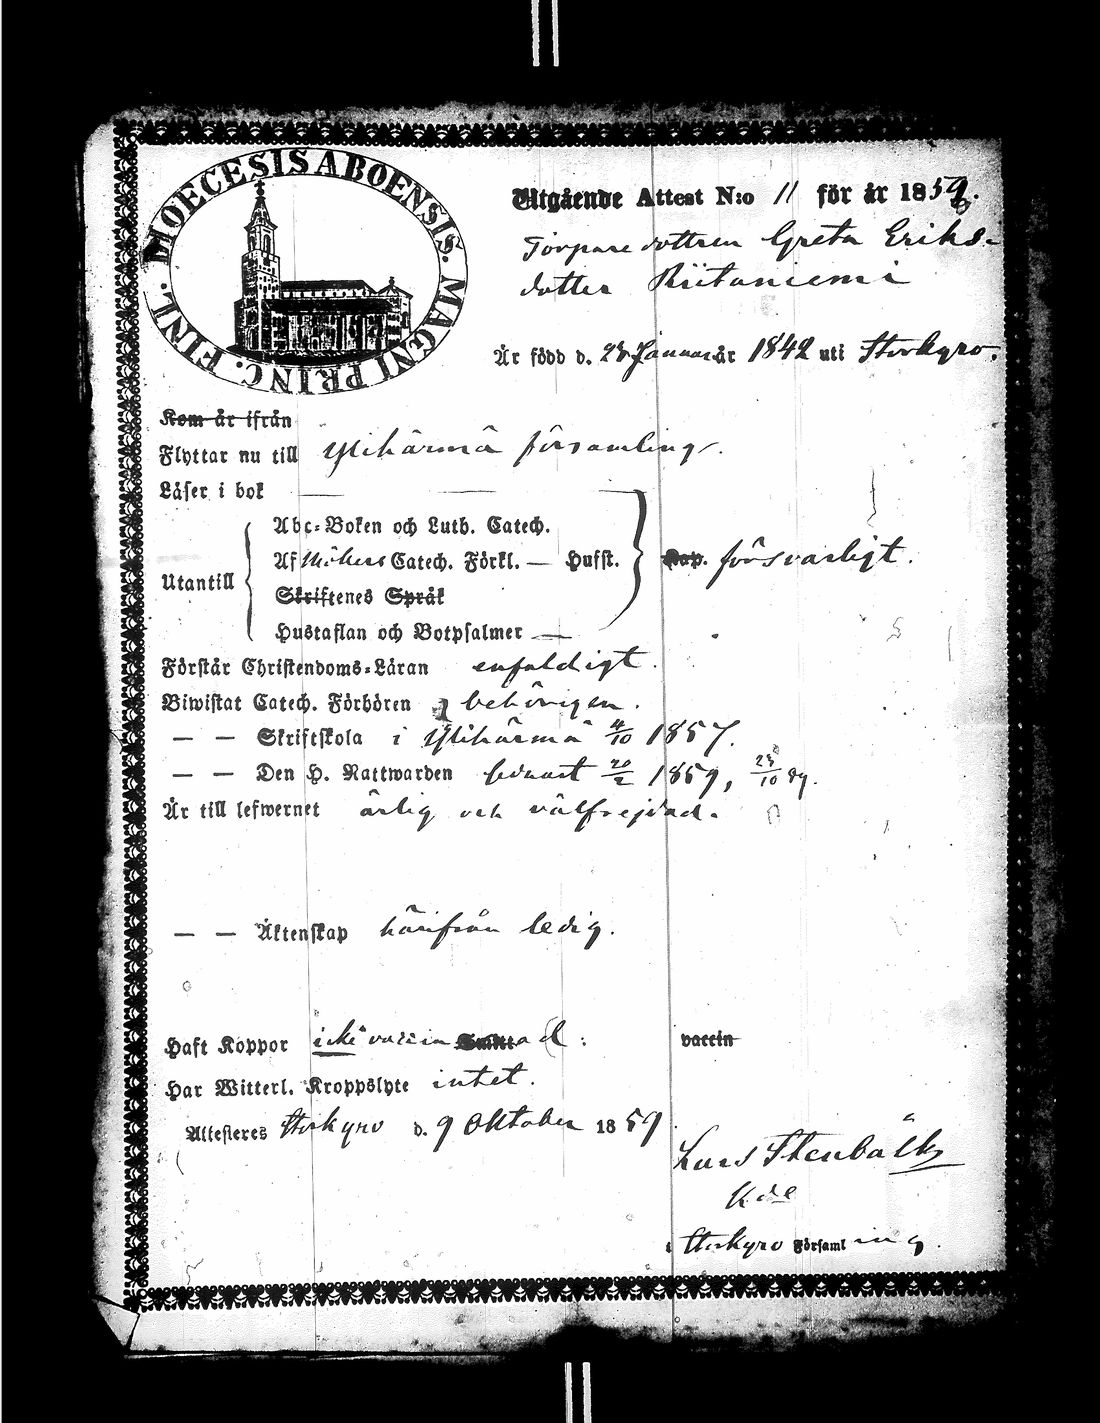 DIOECESIS ABOENSIS. MAGNI PRINC. FINL.
Utgående Attest N:o 11 för år 1859.
Torpare dottren Greta Eriks-
dotter Riitaniemi
Är född d. Januari år 1842 uti Storkyro.
Kom år ifrån
Flyttar nu till Ylihärmä församling.
Läser i bok
Abc-Boken och Luth. Catech.
Af Möllers Catech. Förkl. — Husst. Kap. försvarligt.
Utantill
Skriftenes Språk
Hustaflan och Botpsalmer —
Förstår Christendoms-Läran enfaldigt.
Biwistat Catech. Förhören behörigen.
— — Skriftskola i Ylihärmä 4/10 1857.
— — Den H. Nattwarden senast 20/2 1859, 23/10 dy.
Är till lefwernet ärlig och välfrejdad.
— — Äktenskap härifrån ledig.
Haft Koppor icke vaccin ad. vaccin
Har Witterl. Kroppslyte intet.
Attesteres Storkyro d. 9 Oktober 1859.
Lars Stenbäck
Kde
i Storkyro Församling.